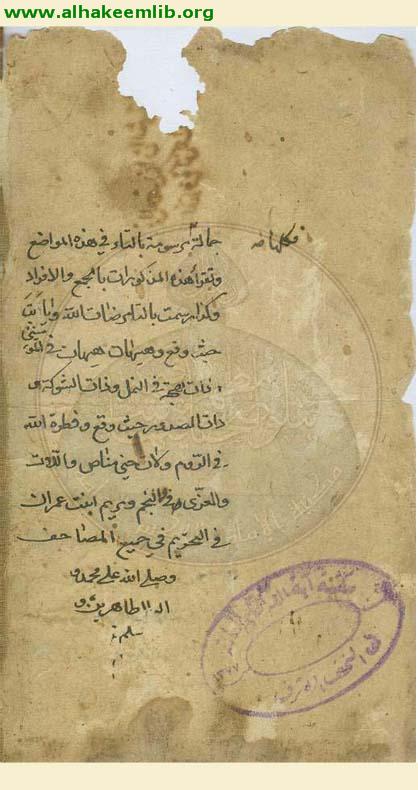 www.alhakeemlib.org
فكلها
جمالة مرسومة بالتاء في هذه المواضع
وتقرأ هذه المذكورات بالجمع والافراد
وكذا رسمت بالتاء مرضات الله ويا ابت
حيث وقع وهيهات هيهات في
ذات بهجة في النمل وذات الشوكة و
ذات الصدور حيث وقع وفطرة الله
في الروم ولات حين مناص واللات
والعزى في النجم ومريم ابنت عمران
في التحريم في جميع المصاحف
وصلى الله على محمد و
اله الطاهرين و
سلم
مكتبة آية الله
في النجف الاشرف